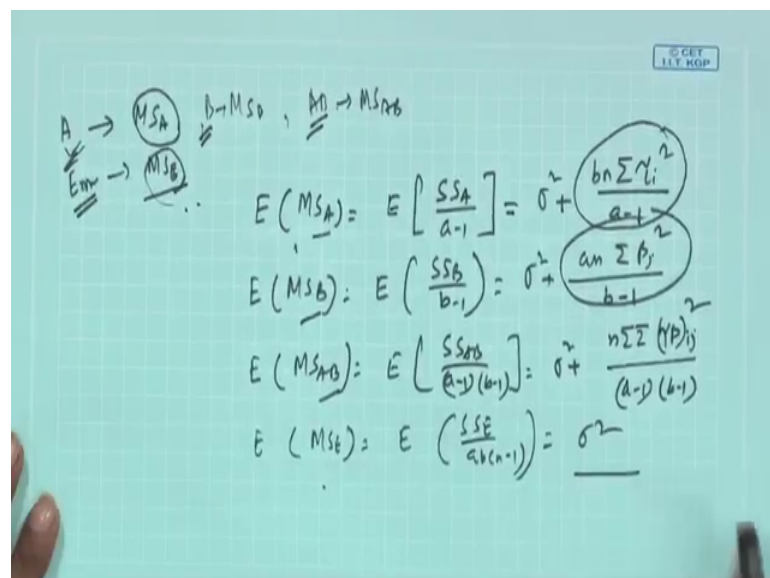 © CET
I.I.T. KGP
A → MS_A B → MS_B , AB → MS_AB
Error → MS_B
E (MS_A) = E [SS_A / a-1] = σ² + bn Σ τ_i² / a-1
E (MS_B) = E (SS_B / b-1) = σ² + an Σ β_j² / b-1
E (MS_AB) = E [SS_AB / (a-1)(b-1)] = σ² + n Σ Σ (τβ)_ij² / (a-1)(b-1)
E (MS_E) = E (SS_E / ab(n-1)) = σ²